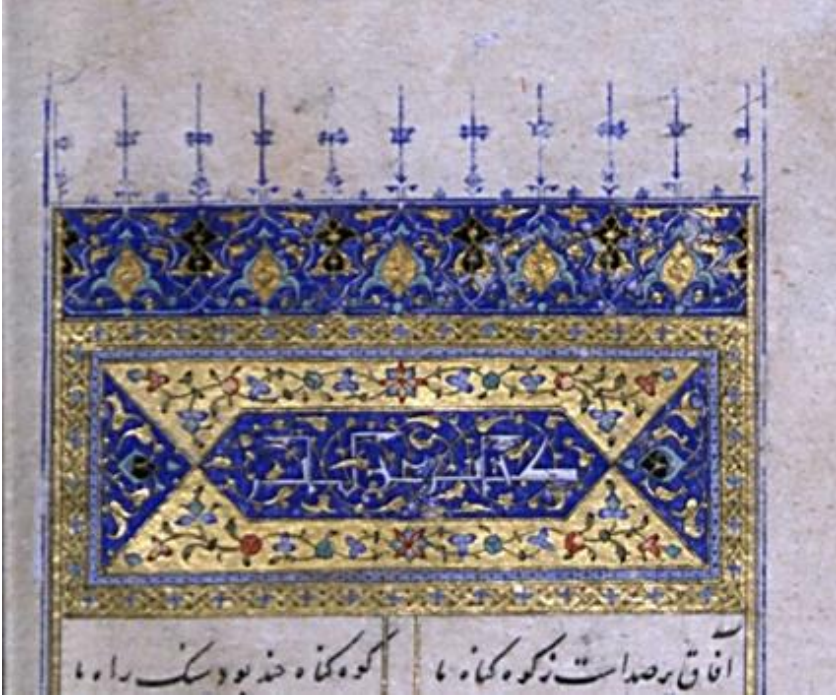 آفاق پرصداست ز کوه گناه ما کوه گناه چند بود سنگ راه ما